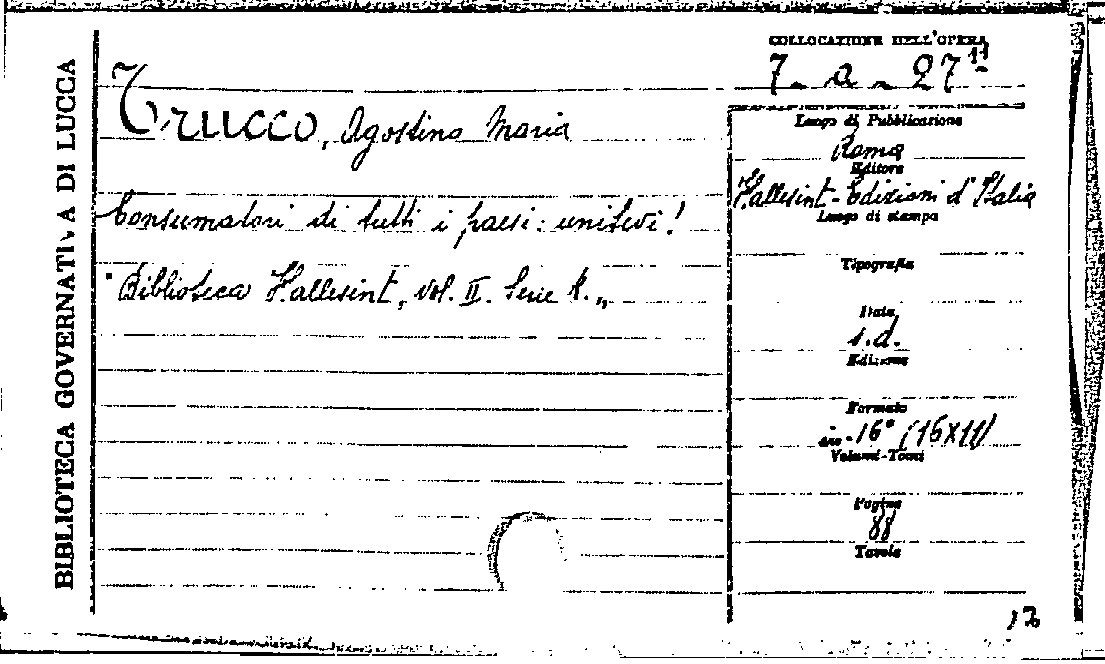 BIBLIOTECA GOVERNATIVA DI LUCCA
COLLOCAZIONE DELL'OPERA
7 - a - 27 11
Trucco, Agostino Maria
Consumatori di tutti i paesi: unitevi!
"Biblioteca Hallesint, vol. II. Serie A."
Luogo di Pubblicazione
Roma
Editore
Hallesint - Edizioni d'Italia
Luogo di stampa
Tipografia
Data
s.d.
Edizione
Formato
in-16° (16x11)
Volumi-Tomi
Pagine
88
Tavole